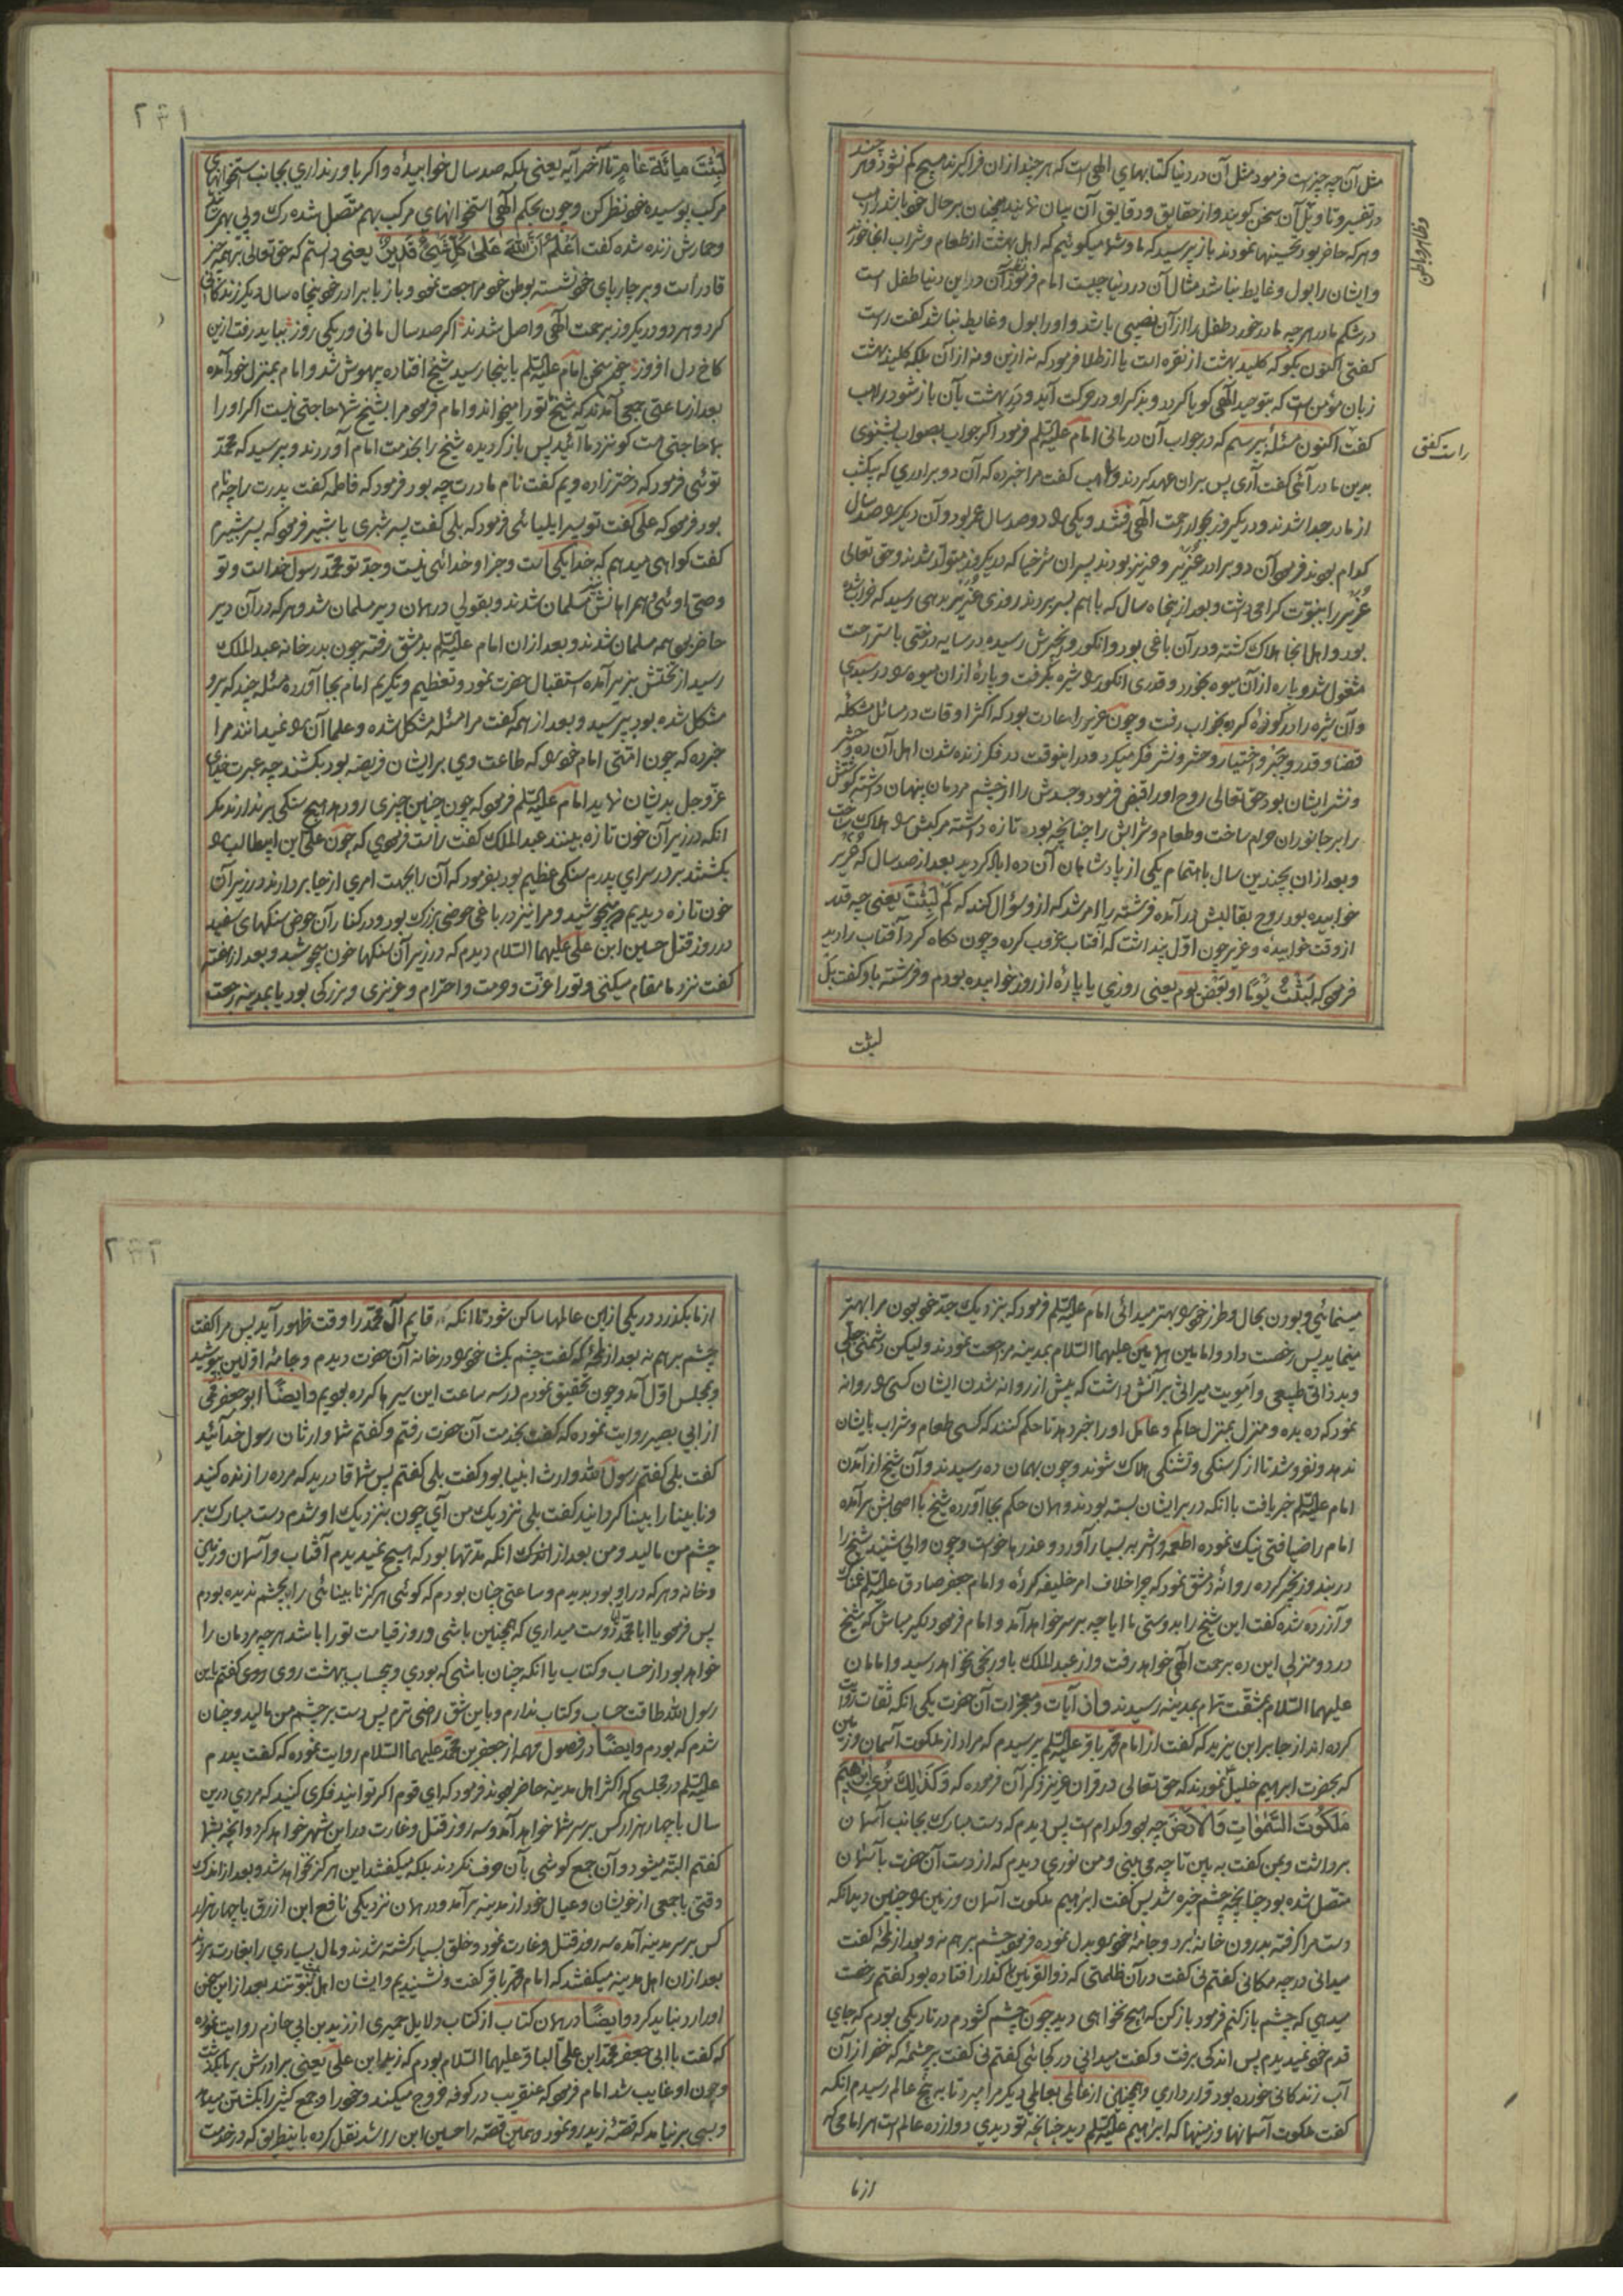 مثل آن چه چیز است فرمود مثل آن در دنیا کتابهای الهی است که هر چند از ان فراگیرند هیچ کم نشود و هر چند
در تفسیر و تاویل آن سخن گویند و از حقایق و دقایق آن بیان نمایند همچنان بر حال خود باشد راهب
و هر که حاضر بود تحسینها نمودند باز پرسید که ما و شما میگوئیم که اهل بهشت از طعام و شراب انجا خورند
و ایشان را بول و غایط نباشد مثال آن در دنیا چیست امام فرمود نظیر آن در این دنیا طفل است
در شکم مادر هر چه مادر خورد طفل را از آن نصیبی باشد و او را بول و غایط نباشد گفت راست
گفتی اکنون بگو که کلید بهشت از نقره است یا از طلا فرمود که نه ازین و نه از آن بلکه کلید بهشت
زبان مؤمن است که بتوحید الهی گویا گردد و بذکر او در حرکت آید و در بهشت بآن باز شود راهب
گفت اکنون مسئلهٔ بپرسم که در جواب آن درمانی امام علیه السلم فرمود اگر جواب بصواب بشنوی
بدین ما در آئی گفت آری پس بران عهد کردند و راهب گفت مرا خبر ده که آن دو برادری که بیکشب
از مادر جدا شدند و در یکروز بجوار رحمت الهی رفتند و یکی را دو صد سال عمر بود و آن دیگر را صد سال
کدام بودند فرمود آن دو برادر عزیر و عزیز بودند پسران شرخیا که در یکروز متولد شدند و حق تعالی
عزیر را بنبوت گرامی داشت و بعد از پنجاه سال که با هم بسر بردند روزی عزیر بدهی رسید که خراب شده
بود و اهل انجا هلاک گشته و در آن باغی بود و انگور و انجیرش رسیده در سایه درختی باستراحت
مشغول شد و پاره از آن میوه بخورد و قدری انگور را شیره بگرفت و پارهٔ از ان میوه را در سبدی
و آن شیره را در کوزهٔ کرده بخواب رفت و چون عزیر را عادت بود که اکثر اوقات در مسائل مشکلهٔ
قضا و قدر و جبر و اختیار و حشر و نشر فکر میکرد و در اینوقت در فکر زنده شدن اهل آن ده و حشر
و نشر ایشان بود حق تعالی روح او را قبض فرمود و جسدش را از چشم مردمان پنهان داشته گوشتش
را بر جانوران حرام ساخت و طعام و شرابش را چنانچه بود تازه داشته مرکبش را هلاک ساخت
و بعد از ان بچندین سال باهتمام یکی از پادشاهان آن ده آباد گردید بعد از صد سال که عزیر
خوابیده بود روح بقالبش در آمده فرشته را امر شد که از و سؤال کند که کَمْ لَبِثْتَ یعنی چه قدر
از وقت خوابیدهٔ و عزیر چون اول پنداشت که آفتاب غروب کرده و چون نگاه کرد آفتاب را دید
فرمود که لَبِثْتُ یَوْمًا اَو بَعْضَ یَوم یعنی روزی یا پارهٔ از روز خوابیده بودم و فرشته باو گفت بَل
لبثت
وظاهر و باطن
راست گفتی
لَبِثْتَ مِائَةَ عَامٍ تا آخر آیه یعنی بلکه صد سال خوابیدهٔ و اگر باور نداری بجانب استخوانهای
مرکب پوسیده خود نظر کن و چون بحکم الهی استخوانهای مرکب بهم متصل شده رگ و پی بهم رساند
و حمارش زنده شده گفت اَعْلَمُ اَنَّ اللّٰهَ عَلٰی کُلِّ شَیْءٍ قَدِیرٌ یعنی دانستم که حق تعالی بر همه چیز
قادر است و بر چارپای خود نشسته بوطن خود مراجعت نمود و باز با برادر خود پنجاه سال دیگر زندگانی
کرد و هر دو در یکروز برحمت الهی واصل شدند اگر صد سال مانی ور یکی روز بباید رفت ازین
کاخ دل افروز چون سخن امام علیه السلم باینجا رسید شیخ افتاده بیهوش شد و امام بمنزل خود آمده
بعد از ساعتی جمعی آمدند که شیخ تو را میخواند و امام فرمود مرا بشیخ شما حاجتی نیست اگر او را
بما حاجتی هست گو نزد ما آئید پس باز گردیده شیخ را بخدمت امام آوردند و پرسید که محمد
توئی فرمود که دختر زاده ویم گفت نام مادرت چه بود فرمود که فاطمه گفت پدرت را چه نام
بود فرمود که علی گفت تو پسر ایلیائی فرمود که بلی گفت پسر شبری یا شبیر فرمود که پسر شبیرم
گفت گواهی میدهم که خدا یکی است و جز او خدائی نیست و جد تو محمد رسول خدا است و تو
وصی اوئی و همراهانش مسلمان شدند و بقولی در همان دیر مسلمان شد و هر که در آن دیر
حاضر بود همه مسلمان شدند و بعد از ان امام علیه السلم بدمشق رفته چون بدر خانه عبد الملک
رسید از تختش بزیر آمده استقبال حضرت نمود و تعظیم و تکریم امام بجا آورده مسئله چند که بر و
مشکل شده بود بپرسید و بعد از همه گفت مرا مسئلهٔ مشکل شده و علما آن را نمیدانند مرا
خبر ده که چون امتی امام خود را که طاعت وی بر ایشان فریضه بود بکشند چه عبرت خدای
عز و جل بدیشان نماید امام علیه السلم فرمود که چون چنین چیزی رو دهد هیچ سنگی بر ندارند مگر
انکه در زیر آن خون تازه بینند عبد الملک گفت راست فرمودی که چون علی ابن ابیطالب را
بکشتند بر در سرای پدرم سنگی عظیم بود بفرمود که آن را بجهت امری از جا بردارند در زیر آن
خون تازه دیدیم که میجوشید و مرا نیز در باغی حوضی بزرگ بود و در کنار آن حوض سنگهای سفید
در روز قتل حسین ابن علی علیهما السلام دیدم که در زیر آن سنگها خون میجوشید و بعد از هفته
گفت نزد ما مقام میکنی و تو را عزت و حرمت و احترام و عزیزی و بزرگی بود یا بمدینه رجعت
مینمائی و بودن بحال و طرز خود را بهتر میدانی امام علیه السلم فرمود که بنزدیک جد خود بودن مرا بهتر
مینماید پس رخصت داد و امامین همامین علیهما السلام بمدینه مراجعت نمودند ولیکن دشمنی جبلی
و بد ذاتی طبیعی و امویت میراثی بر آنش داشت که پیش از روانه شدن ایشان کسی را روانه
نمود که ده بده و منزل بمنزل حاکم و عامل او را خبر دهد تا حکم کنند که کسی طعام و شراب بایشان
ندهد و نفروشد تا از گرسنگی و تشنگی هلاک شوند و چون بهمان ده رسیدند و آن شیخ از آمدن
امام علیه السلم خبر یافت با انکه در بر ایشان بسته بودند و همان حکم بجا آورده شیخ با اصحابش بر آمده
امام را ضیافتی نیک نموده اطعمه و اشربه بسیار آورد و عذرها خواست و چون والی شنید شیخ را
در بند و زنجیر کرده روانهٔ دمشق نمود که چرا خلاف امر خلیفه کردهٔ و امام جعفر صادق علیه السلم غمناک
و آزرده شده گفت این شیخ را بدوستی ما ایا چه بر سر خواهد آمد و امام فرمود دلگیر مباش که شیخ
در دو منزلی این ده برحمت الهی خواهد رفت و از عبد الملک باو رنجی نخواهد رسید و امامان
علیهما السلام بمشقت تمام بمدینه رسیدند و از آیات و معجزات آن حضرت یکی انکه ثقات روایت
کرده اند از جابر ابن یزید که گفت از امام محمد باقر علیه السلم پرسیدم که مراد از ملکوت آسمان و زمین
که بحضرت ابراهیم خلیل نمودند که حق تعالی در قران عزیز ذکر آن فرموده که وَکَذٰلِکَ نُرِی اِبْرٰهِیمَ
مَلَکُوتَ السَّمٰوَاتِ وَالْاَرْضِ چه بود و کدام است پس دیدم که دست مبارک بجانب آسمان
برداشت و بمن گفت به بین تا چه می بینی و من نوری دیدم که از دست آن حضرت بآسمان
متصل شده بود چنانچه چشم خیره شد پس گفت ابراهیم ملکوت آسمان و زمین را چنین دید انکه
دست مرا گرفته بدرون خانه برد و جامهٔ خود را بدل نموده فرمود چشم بر هم نه و بعد از لمحهٔ گفت
میدانی در چه مکانی گفتم نی گفت در آن ظلمتی که ذو القرنین را گذار افتاده بود گفتم رخصت
میدهی که چشم باز کنم فرمود باز کن که هیچ نخواهی دید چون چشم گشودم در تاریکی بودم که جای
قدم خود نمیدیدم پس اندکی برفت و گفت میدانی در کجائی گفتم نی گفت بر چشمهٔ که خضر از آن
آب زندگانی خورده بود قرار داری و همچنین از عالمی بعالمی دیگر مرا میبرد تا به پنج عالم رسیدم انکه
گفت ملکوت آسمانها و زمینها که ابراهیم علیه السلم دید چنانچه تو دیدی دوازده عالم است هر امامی که
از ما
از ما بگذرد در یکی از این عالمها ساکن شود تا انکه قایم آل محمد را وقت ظهور آید پس مرا گفت
چشم بر هم نه بعد از لمحهٔ که گفت چشم بگشا خود را در خانه آن حضرت دیدم و جامهٔ اولین بپوشید
و بمجلس اول آمد و چون تحقیق نمودم در سه ساعت این سیرها کرده بودیم وایضًا ابو جعفر قمی
از ابی بصیر روایت نموده که گفت بخدمت آن حضرت رفتم و گفتم شما وارثان رسول خدائید
گفت بلی گفتم رسول الله وارث انبیا بود گفت بلی گفتم پس شما قادرید که مرده را زنده کنید
و نابینا را بینا گردانید گفت بلی نزدیک من آی چون بنزدیک او شدم دست مبارک بر
چشم من مالید و من بعد از اندک انکه مدتها بود که هیچ نمیدیدم آفتاب و آسمان و زمین
و خانه و هر که در او بود بدیدم و ساعتی چنان بودم که گوئی هرگز نابینائی را بچشم ندیده بودم
پس فرمود یا ابا محمد دوست میداری که همچنین باشی و روز قیامت تو را باشد هر چه مردمان را
خواهد بود از حساب و کتاب یا انکه چنان باشی که بودی و بیحساب ببهشت روی روی گفتم یابن
رسول الله طاقت حساب و کتاب ندارم و باین شق راضی ترم پس دست بر چشم من مالید و چنان
شدم که بودم وایضًا در فصول مهمه از جعفر بن محمد علیهما السلام روایت نموده که گفت پدرم
علیه السلم در مجلسی که اکثر اهل مدینه حاضر بودند فرمود که ای قوم اگر توانید فکری کنید که مردی درین
سال با چهار هزار کس بر سر شما خواهد آمد و سه روز قتل و غارت در این شهر خواهد کرد و انچه بشما
گفتم البته میشود و آن جمع گوشی بآن حرف نکردند بلکه میگفتند این هرگز نخواهد شد و بعد از اندک
وقتی با جمعی از خویشان و عیال خود از مدینه بر آمد و در همان نزدیکی نافع ابن ازرق با چهار هزار
کس بر سر مدینه آمده سه روز قتل و غارت نمود و خلق بسیار کشته شدند و مال بسیاری را بغارت بردند
بعد از ان اهل مدینه میگفتند که امام محمد باقر گفت و نشنیدیم و ایشان اهل بیت نبوتند بعد از این سخن
او را رد نباید کرد وایضًا در همان کتاب از کتاب دلایل حمیری از زید بن ابی حازم روایت نموده
که گفت با ابی جعفر محمد ابن علی الباقر علیهما السلام بودم که زید ابن علی یعنی برادرش بر ما بگذشت
و چون او غایب شد امام فرمود که عنقریب در کوفه خروج میکند و خود را و جمع کثیر را بکشتن میدهد
و بسی بر نیامد که قصهٔ زید رو نمود و همین قصه را حسین ابن راشد نقل کرده باینطریق که در خدمت